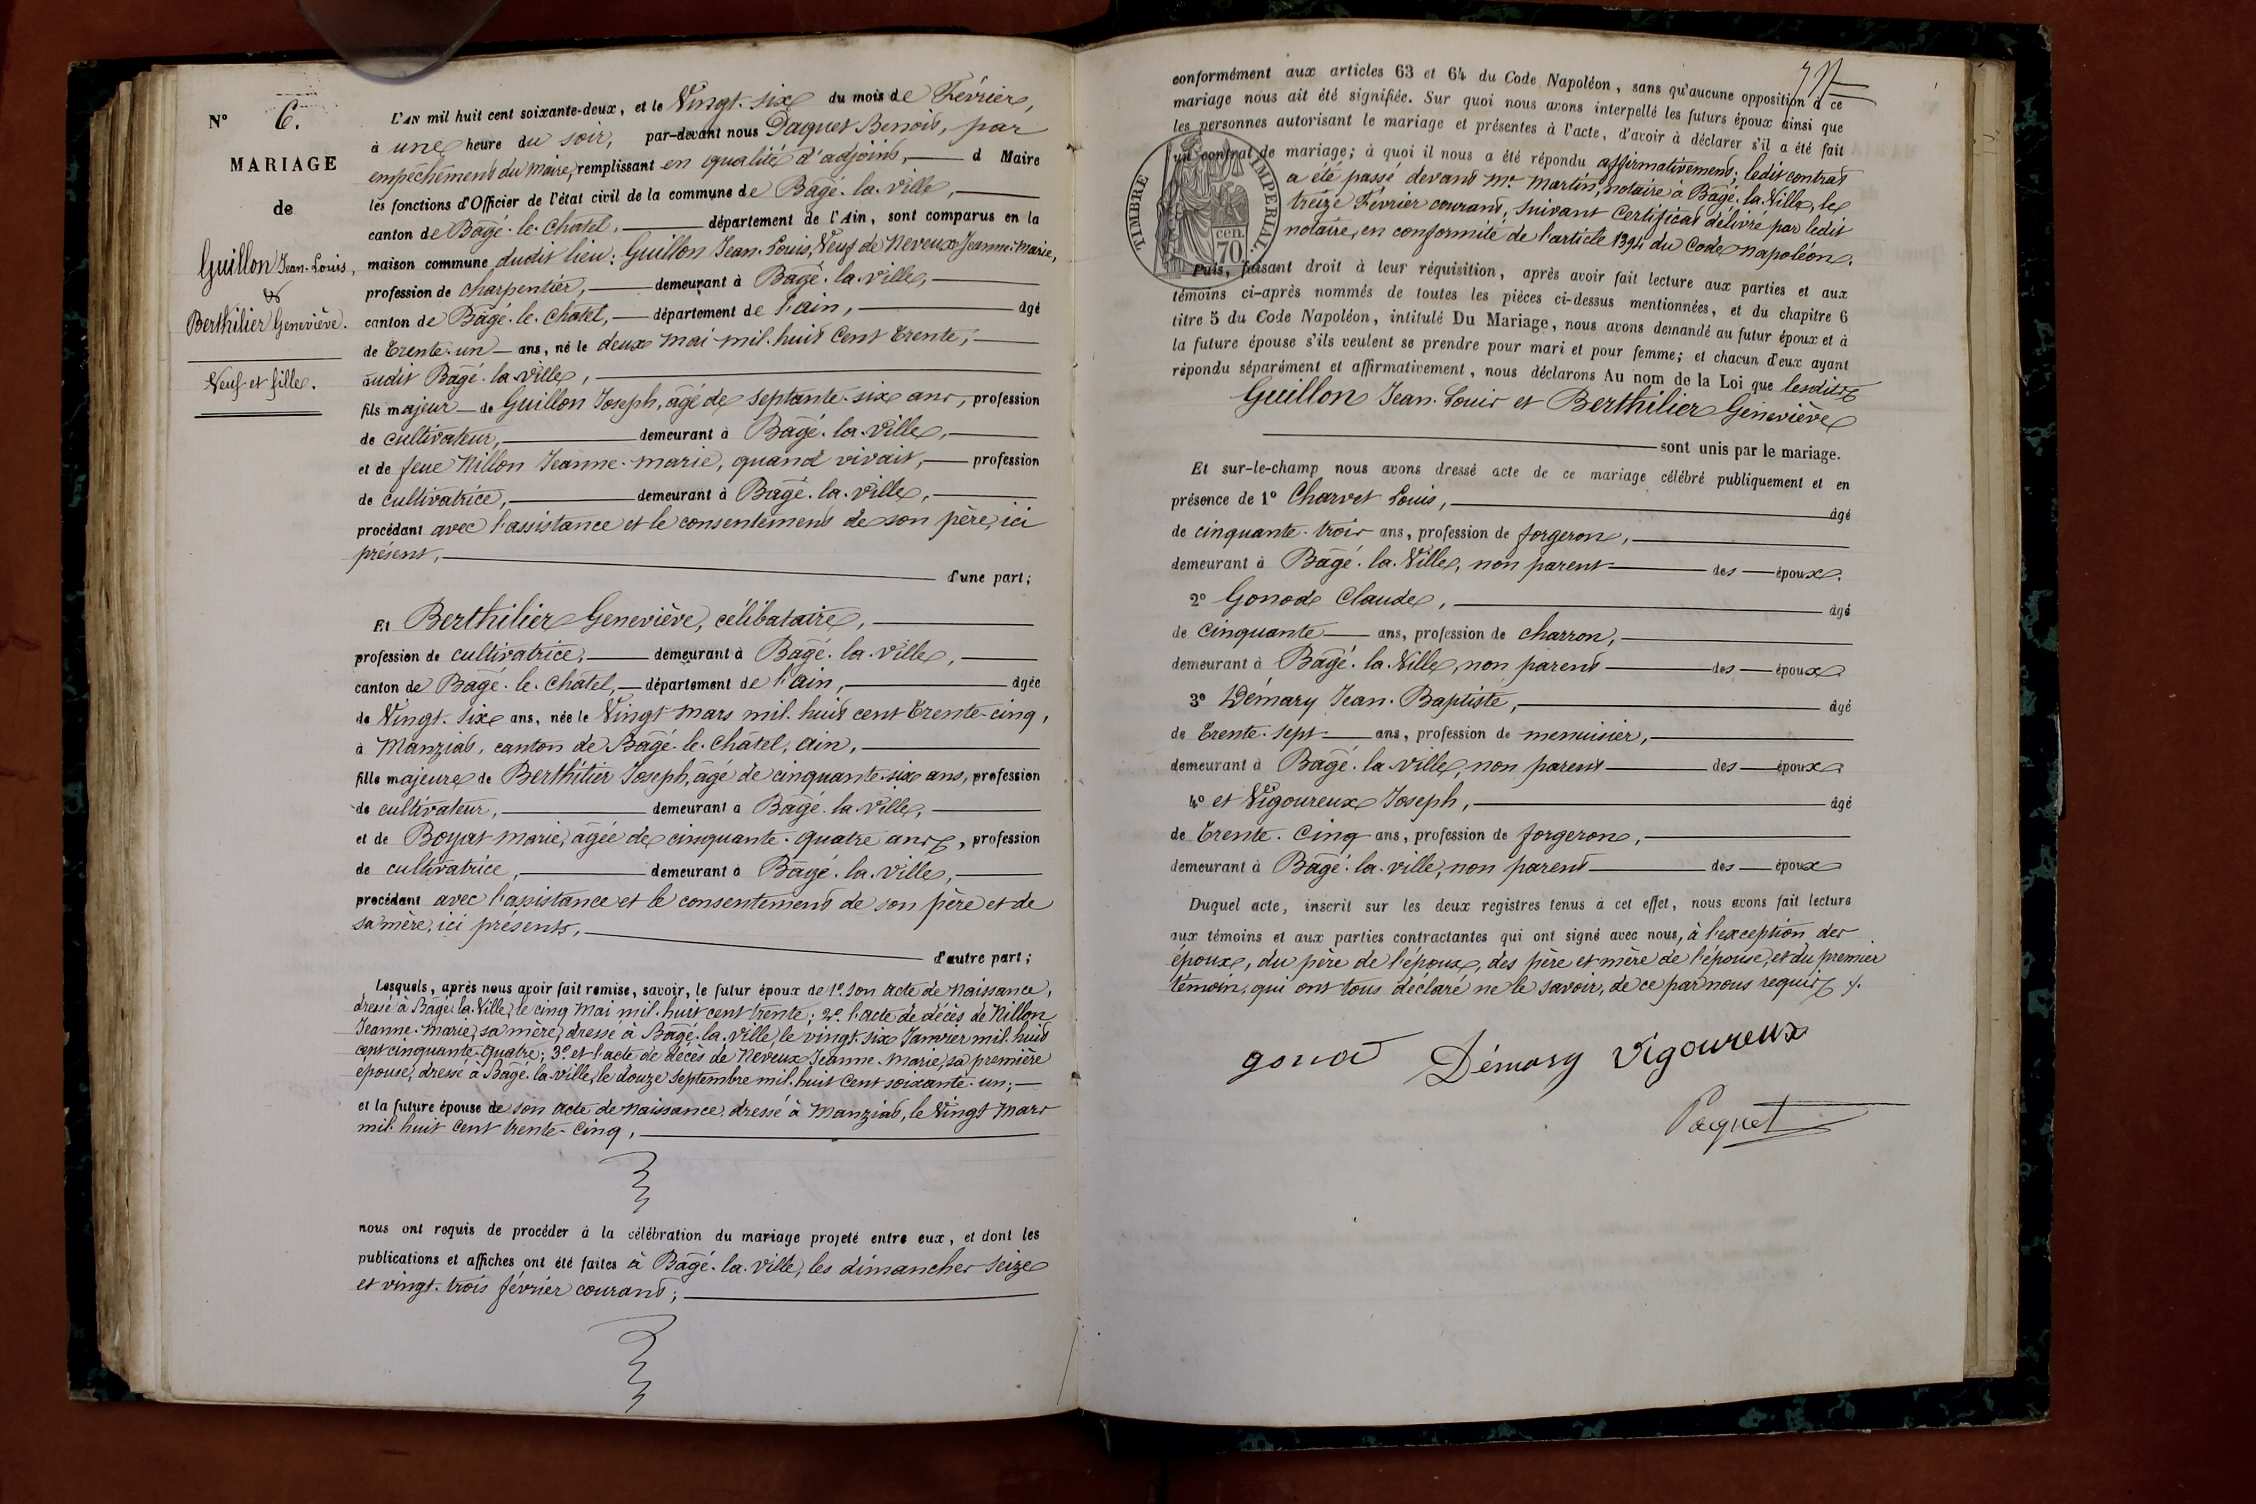 N° 6.
MARIAGE
de
Guillon Jean-Louis,
&
Berthilier Geneviève.
Veuf et fille.
L'AN mil huit cent soixante-deux, et le Vingt-six du mois de Février,
à une heure du soir, par-devant nous Paquet Benoit, par
empêchement du Maire, remplissant en qualité d'adjoint, d Maire
les fonctions d'Officier de l'état civil de la commune de Bâgé-la-Ville,
canton de Bâgé-le-Châtel, département de l'Ain, sont comparus en la
maison commune dudit lieu: Guillon Jean-Louis, Veuf de Neveux Jeanne-Marie,
profession de charpentier, demeurant à Bâgé-la-Ville,
canton de Bâgé-le-Châtel, département de l'ain, âgé
de trente-un ans, né le deux Mai mil-huit cent trente,
audit Bâgé-la-Ville,
fils majeur de Guillon Joseph, âgé de septante-six ans, profession
de cultivateur, demeurant à Bâgé-la-Ville,
et de feue Nillon Jeanne-Marie, quand vivait, profession
de cultivatrice, demeurant à Bâgé-la-Ville,
procédant avec l'assistance et le consentement de son père, ici
présent,
d'une part;
Et Berthilier Geneviève, célibataire,
profession de cultivatrice, demeurant à Bâgé-la-Ville,
canton de Bâgé-le-Châtel, département de l'ain, âgée
de Vingt-six ans, née le Vingt Mars mil-huit cent trente-cinq,
à Manziat, canton de Bâgé-le-Châtel, ain,
fille majeure de Berthilier Joseph, âgé de cinquante-six ans, profession
de cultivateur, demeurant à Bâgé-la-Ville,
et de Boyat Marie, âgée de cinquante-quatre ans, profession
de cultivatrice, demeurant à Bâgé-la-Ville,
procédant avec l'assistance et le consentement de son père et de
sa mère, ici présents,
d'autre part;
Lesquels, après nous avoir fait remise, savoir, le futur époux de 1° son acte de Naissance,
dressé à Bâgé-la-Ville, le cinq Mai mil-huit cent trente; 2° l'acte de décès de Nillon
Jeanne-Marie, sa mère, dressé à Bâgé-la-Ville, le vingt-six Janvier mil-huit
cent cinquante-quatre; 3° et l'acte de décès de Neveux Jeanne-Marie, sa première
épouse, dressé à Bâgé-la-Ville, le douze Septembre mil-huit cent soixante-un;
et la future épouse de son acte de Naissance, dressé à Manziat, le Vingt Mars
mil-huit cent trente-cinq,
nous ont requis de procéder à la célébration du mariage projeté entre eux, et dont les
publications et affiches ont été faites à Bâgé-la-Ville, les dimanches seize
et vingt-trois février courant;
conformément aux articles 63 et 64 du Code Napoléon, sans qu'aucune opposition à ce
mariage nous ait été signifiée. Sur quoi nous avons interpellé les futurs époux ainsi que
les personnes autorisant le mariage et présentes à l'acte, d'avoir à déclarer s'il a été fait
un contrat de mariage; à quoi il nous a été répondu affirmativement; ledit contrat
a été passé devant Me Martin, notaire à Bâgé-la-Ville, le
treize Février courant, suivant certificat délivré par ledit
notaire, en conformité de l'article 1394 du Code Napoléon.
TIMBRE IMPERIAL.
cen.
70
Puis, faisant droit à leur réquisition, après avoir fait lecture aux parties et aux
témoins ci-après nommés de toutes les pièces ci-dessus mentionnées, et du chapitre 6
titre 5 du Code Napoléon, intitulé Du Mariage, nous avons demandé au futur époux et à
la future épouse s'ils veulent se prendre pour mari et pour femme; et chacun d'eux ayant
répondu séparément et affirmativement, nous déclarons Au nom de la Loi que lesdits
Guillon Jean-Louis et Berthilier Geneviève
sont unis par le mariage.
Et sur-le-champ nous avons dressé acte de ce mariage célébré publiquement et en
présence de 1° Charvet Louis, âgé
de cinquante-trois ans, profession de forgeron,
demeurant à Bâgé-la-Ville, non parent des époux.
2° Gonod Claude, âgé
de cinquante ans, profession de charron,
demeurant à Bâgé-la-Ville, non parent des époux
3° Démary Jean-Baptiste, âgé
de trente-sept ans, profession de menuisier,
demeurant à Bâgé-la-Ville, non parent des époux
4° et Vigoureux Joseph, âgé
de trente-cinq ans, profession de forgeron,
demeurant à Bâgé-la-Ville, non parent des époux
Duquel acte, inscrit sur les deux registres tenus à cet effet, nous avons fait lecture
aux témoins et aux parties contractantes qui ont signé avec nous, à l'exception des
époux, du père de l'époux, des père et mère de l'épouse, et du premier
témoin, qui ont tous déclaré ne le savoir, de ce par nous requis.
gonod Démary Vigoureux
Paquet